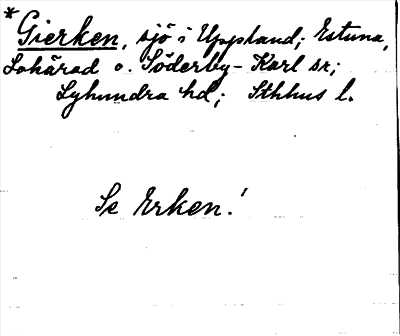 *Gierken, sjö i Uppland; Estuna,
Lohärad o. Söderby-Karl sr;
Lyhundra hd; Sthhus l.
Se Erken!